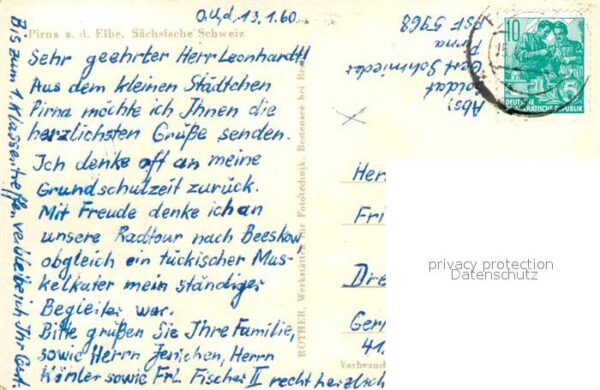 O.U.d. 13.1.60.
Pirna a. d. Elbe, Sächsische Schweiz
Sehr geehrter Herr Leonhardt!
Aus dem kleinen Städtchen
Pirna möchte ich Ihnen die
herzlichsten Grüße senden.
Ich denke oft an meine
Grundschulzeit zurück.
Mit Freude denke ich an
unsere Radtour nach Beeskow
obgleich ein tückischer Mus-
kelkater mein ständiger
Begleiter war.
Bitte grüßen Sie Ihre Familie,
sowie Herrn Jenichen, Herrn
Köhler sowie Frl. Fischer II recht herzlich
Bis zum 1. Klassentreffen verbleibe ich Ihr Gert.
ROTHER, Werkstätten für Fototechnik, Bestensee bei Be
Abs:
Soldat
Gert Schmieder
Pirna
PSF 5968
10
DEUTSCHE
DEMOKRATISCHE REPUBLIK
Her
Fri
Dre
Gern
41.
Verbrau
privacy protection
Datenschutz